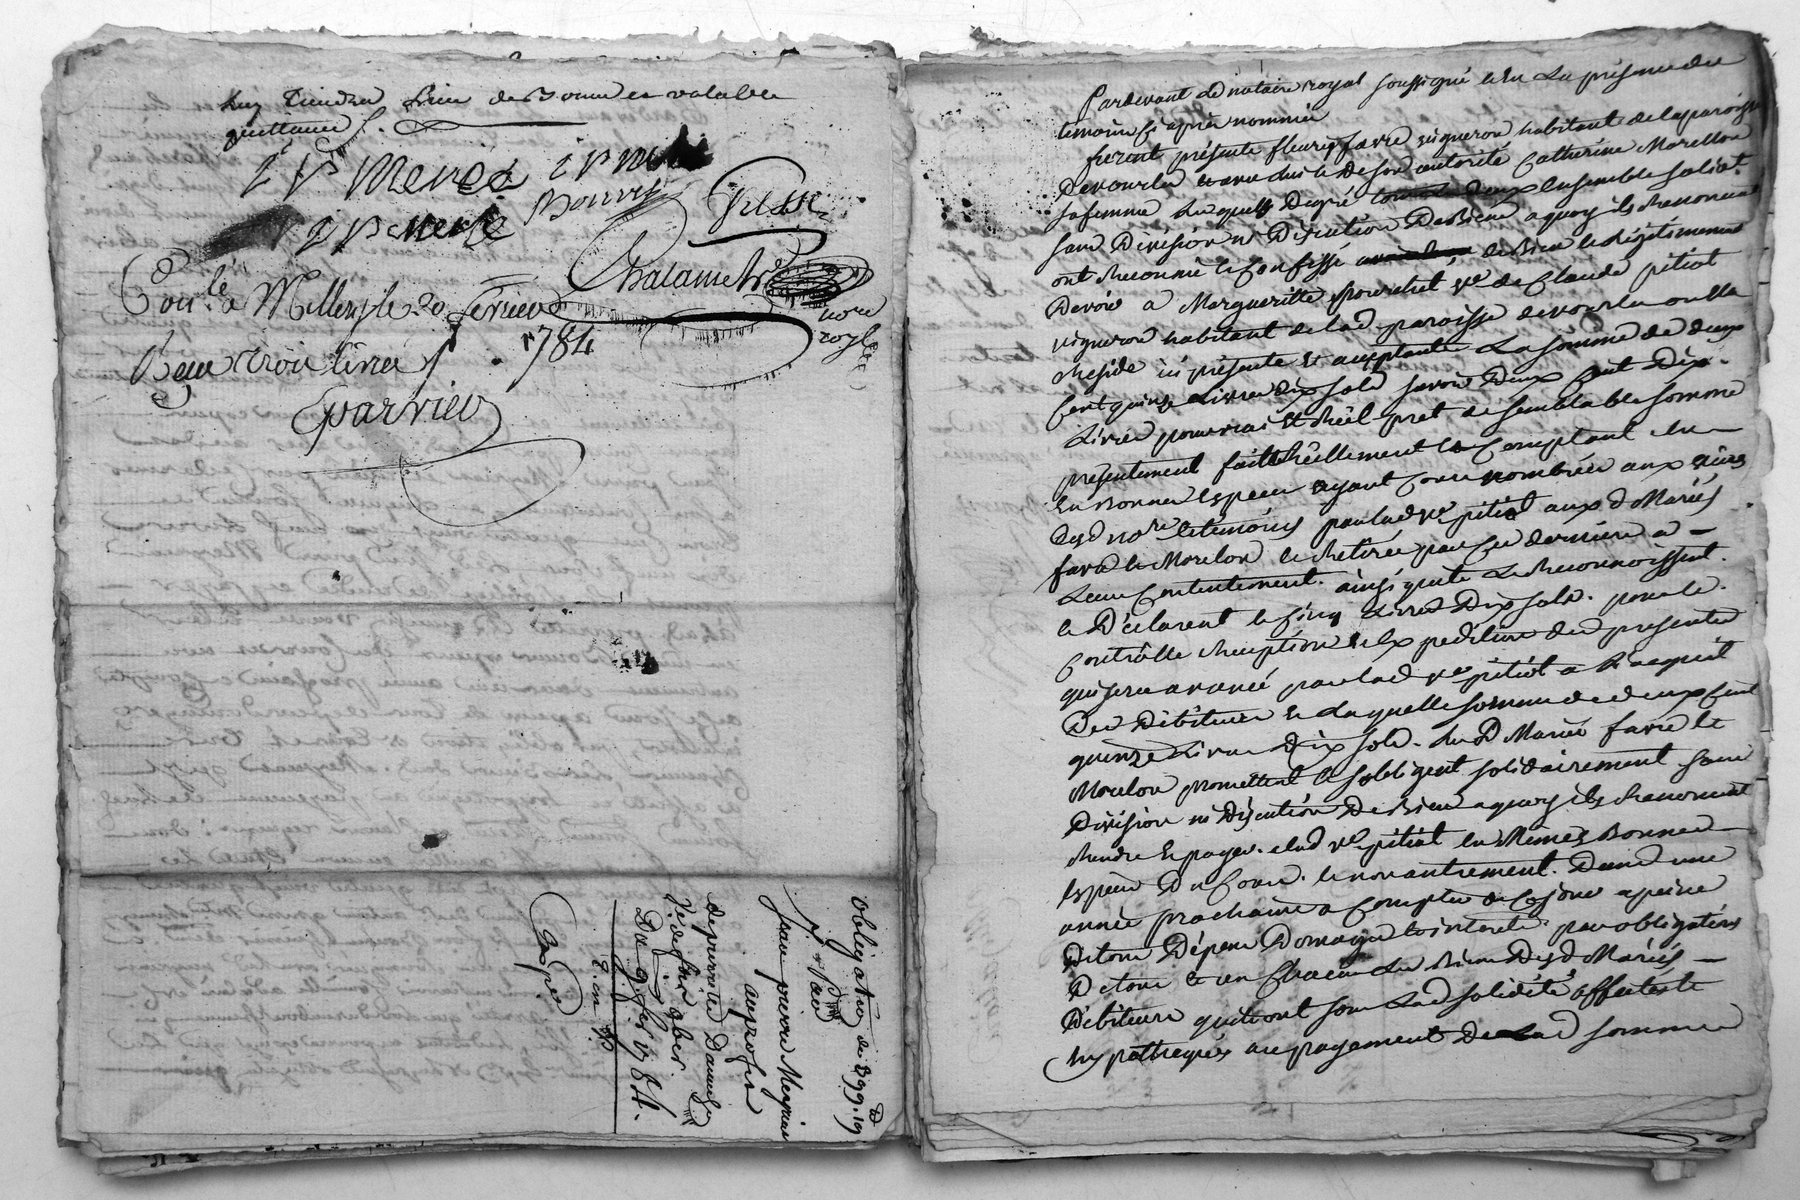 luy tiendra lieu de bonne et valable
quittance
J P Meriés J P M
J P Meriés Bouvy
Chalamel
nore
royal
Con.lé a Millery le 20 fevrier
1784
Reçu trois livres
Eparvier
Obligation de 299.19
par
jean pierre Meyrieu
au profit
de pierrette
Du 9 fer 1784.
Expé.
Pardevant Le notaire royal soussigné et En La présence des
temoins cy après nommés
furent présents fleury favre vigneron habitant de la paroisse
de vourles et avec luy de son autorité Catherine Morellon
sa femme lesquels De gré tous deux Ensemble solidt.
sans Division ny Discution De Biens a quoy ils Renoncent
ont Reconnu et Confessé devoir bien et légitimement
Devoir a Margueritte pourchet ve de Claude pitiot
vigneron habitant de lad. paroisse de vourles ou Elle
Réside icy présente et acceptante La somme de deux
Cent quinze Livres dix sols savoir Deux Cent Dix
Livres pour vrai et Réel pret de semblable somme
présentement fait Réellement et Comptant
En Bonnes Especes ayant Cours nombrées aux vües
Dud nore et témoins par lad ve pitiot aux d Mariés
favre et Morelon et Retirée par Ces derniers a
Leur Contentement. ainsi qu'ils Le Reconnoissent
et Déclarent et Cinq Livres Dix sols. pour le
Contrôlle Reception et Expedition des presentes
qui sera avancé par lad ve pitiot a L'acquit
Des Débiteurs Et laquelle somme de deux Cent
quinze Livres Dix sols. les d Mariés favre et
Morelon promettent et s'obligent solidairement sans
Division ni Discution De Biens a quoy ils Renoncent
Rendre Et payer a lad ve pitiot En Mêmes Bonnes
Especes De Cours. et non autrement. Dans une
année prochaine a Compter de Ce jour a peine
De tous Dépens Domages et intérets par obligation
De tous et un Chacun les Biens Desd Mariés
Débiteurs qui sont sous Lad solidité affectés et
hypotheques au payement De Lad somme